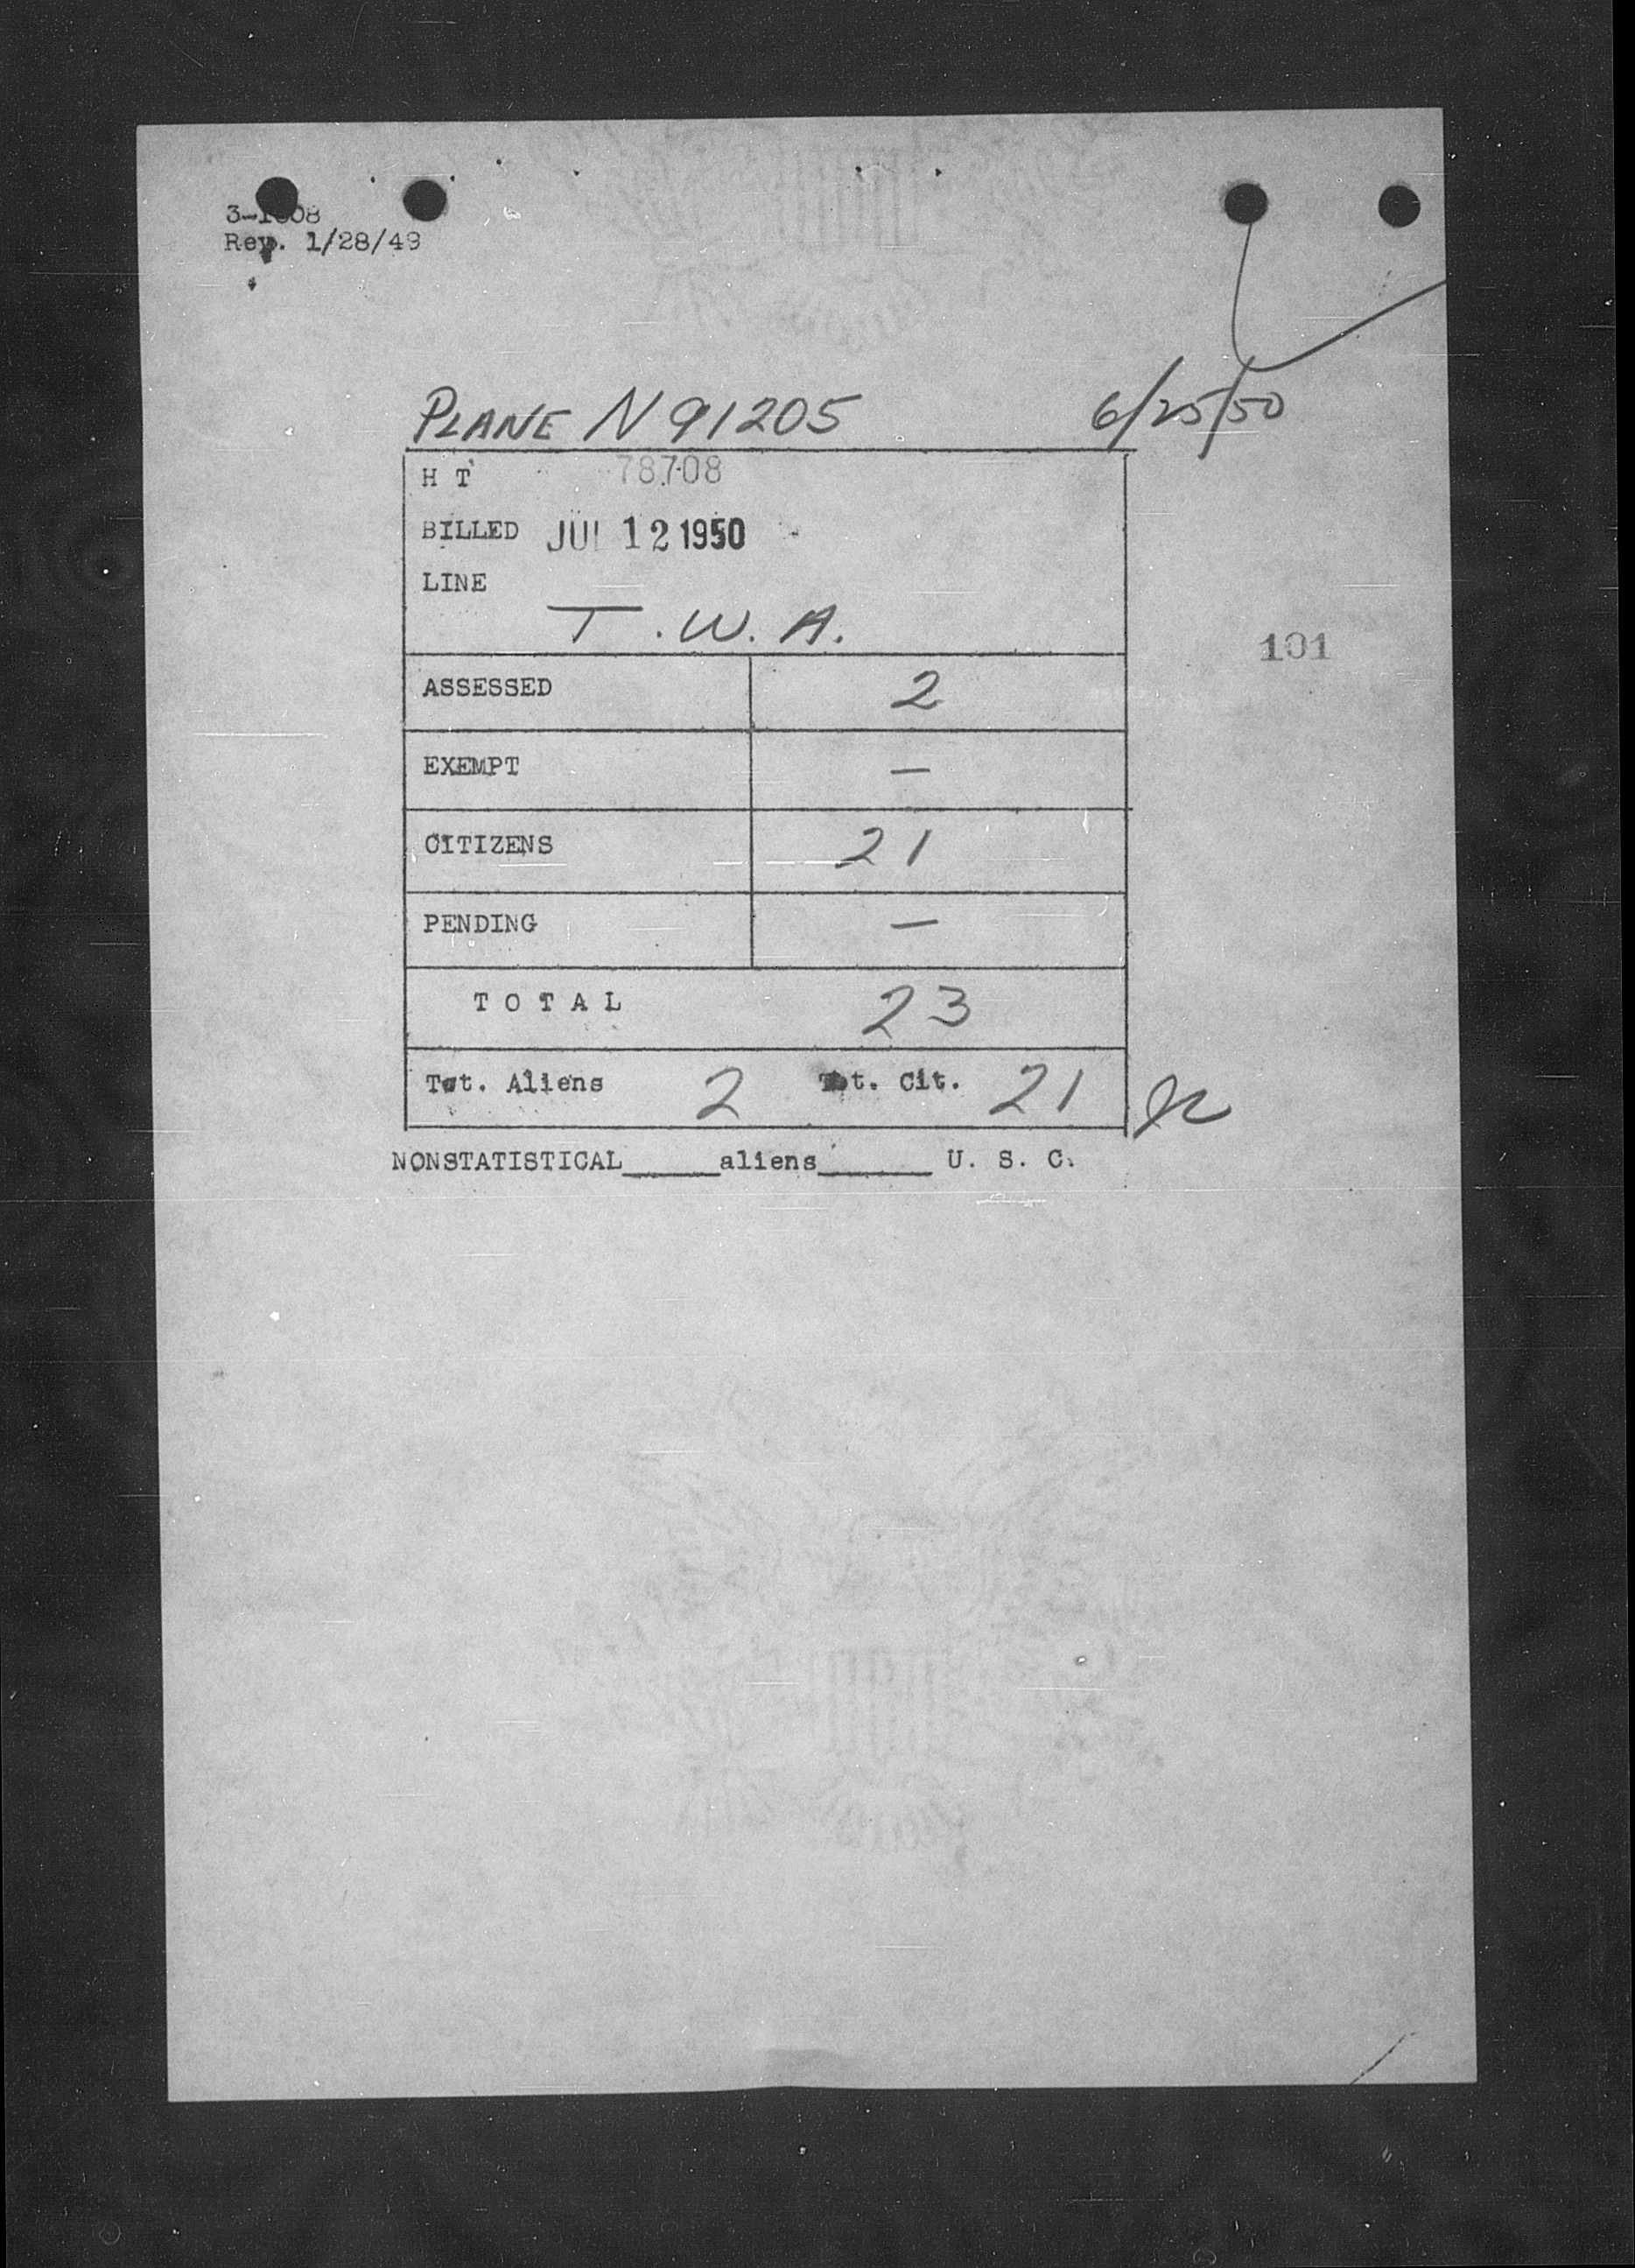 Rev. 1/28/49
PLANE N 91205 6/25/50
H T 78708
BILLED JUL 12 1950
LINE
T.W.A.
101
ASSESSED 2
EXEMPT —
CITIZENS 21
PENDING —
TOTAL 23
Tot. Aliens 2 Tot. Cit. 21
NONSTATISTICAL_____aliens______ U. S. C.